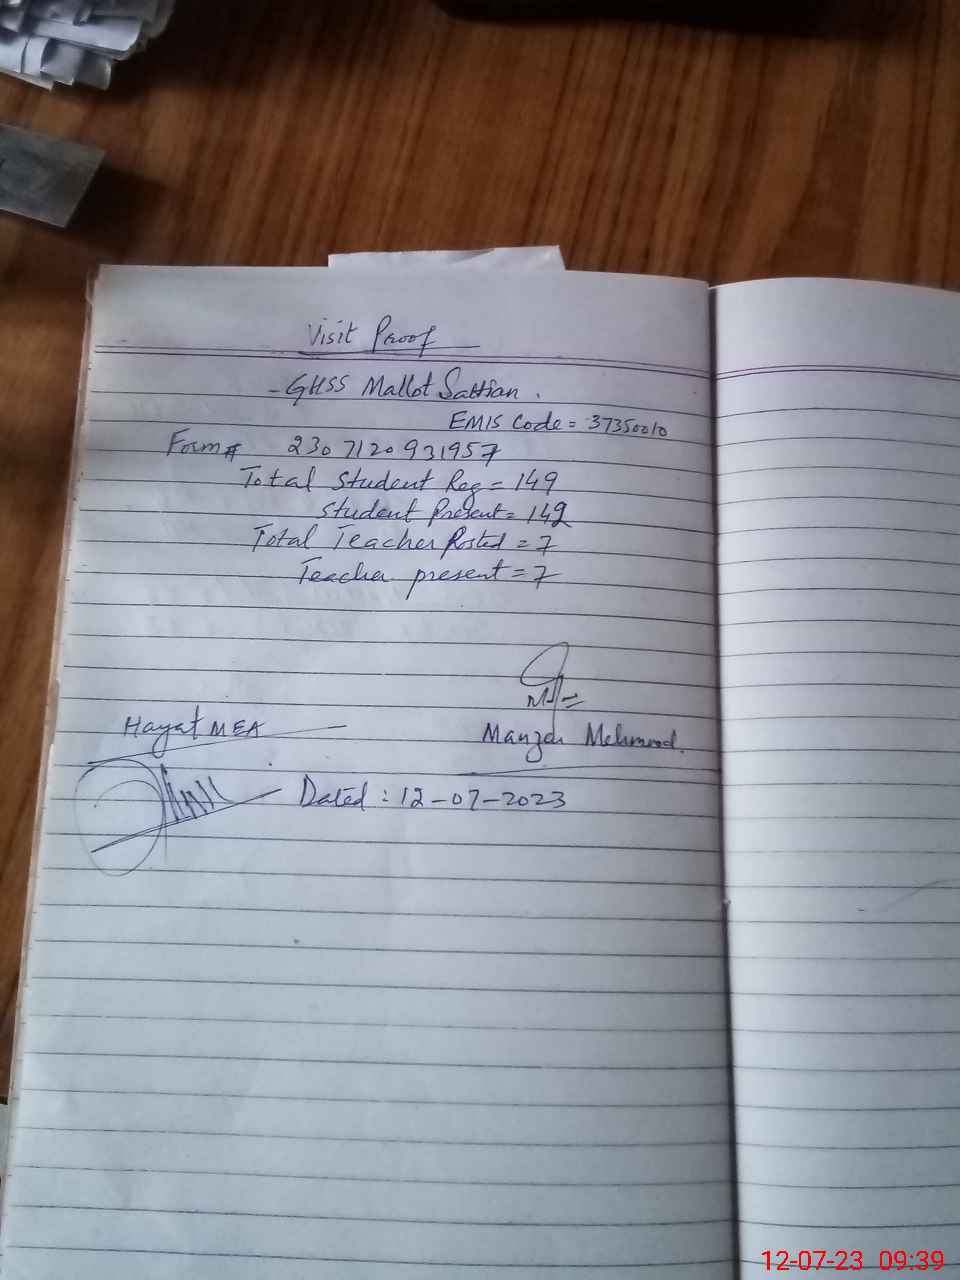 Visit Proof
- GHSS Mallot Sattian.
EMIS Code = 37350010
Form # 2307120931957
Total Student Reg = 149
Student Present = 142
Total Teacher Posted = 7
Teacher present = 7
Hayat MEA
Manzar Mehmood.
Dated : 12-07-2023
12-07-23 09:39